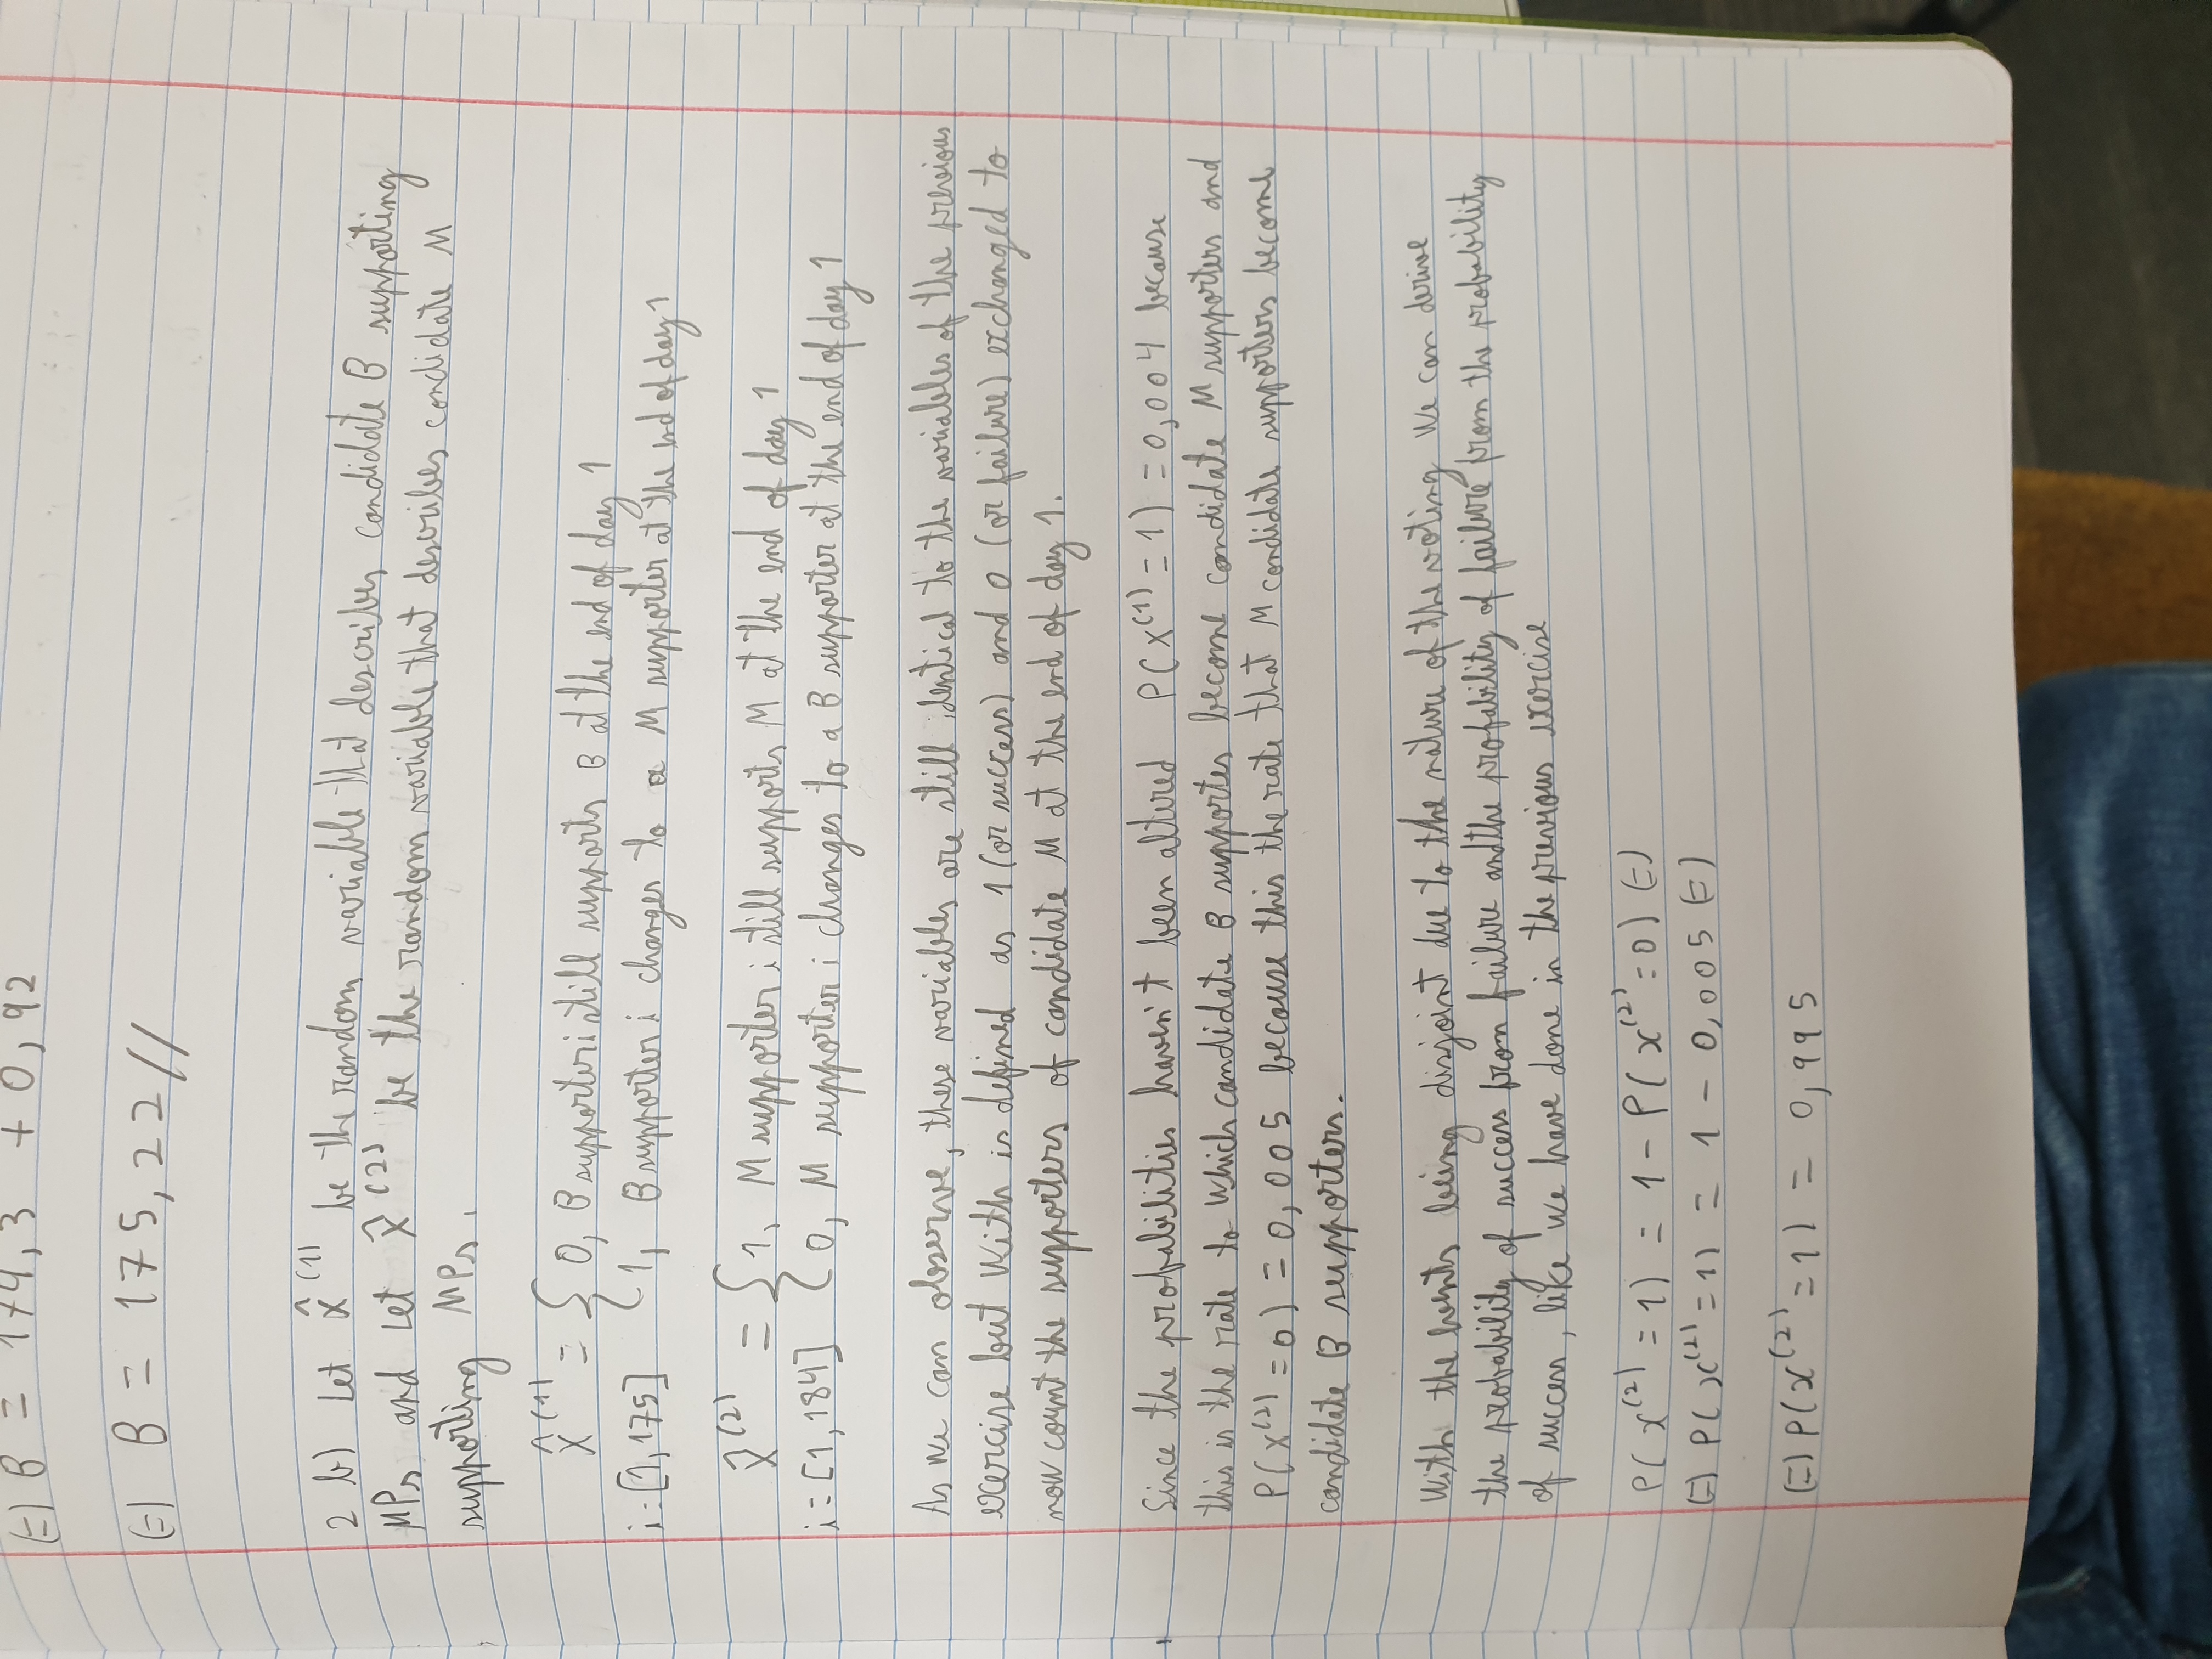 (=) B = 174,3 + 0,92
(=) B = 175,22//
2 b) Let X̂^(1) be the random variable that describes candidate B supporting
MPs and Let X̂^(2) be the random variable that describes candidate M
supporting MPs.
X̂^(1) = { 0, B supporter i still supports B at the end of day 1
i=[1,175] 1, B supporter i changes to a M supporter at the end of day 1
X̂^(2) = { 1, M supporter i still supports M at the end of day 1
i=[1,184] 0, M supporter i changes to a B supporter at the end of day 1
As we can observe, these variables are still identical to the variables of the previous
exercise but with is defined as 1 (or success) and 0 (or failure) exchanged to
now count the supporters of candidate M at the end of day 1.
Since the probabilities haven't been altered P(X^(1) = 1) = 0,004 because
this is the rate to which candidate B supportes become candidate M supporters and
P(X^(2) = 0) = 0,005 because this the rate that M candidate supporters become
candidate B supporters.
With the events being disjoint due to the nature of the voting we can derive
the probability of success from failure and the probability of failure from the probability
of success, like we have done in the previous exercise
P(x^(2) = 1) = 1 - P(x^(2) = 0) (=)
(=) P(x^(2) = 1) = 1 - 0,005 (=)
(=) P(x^(2) = 1) = 0,995